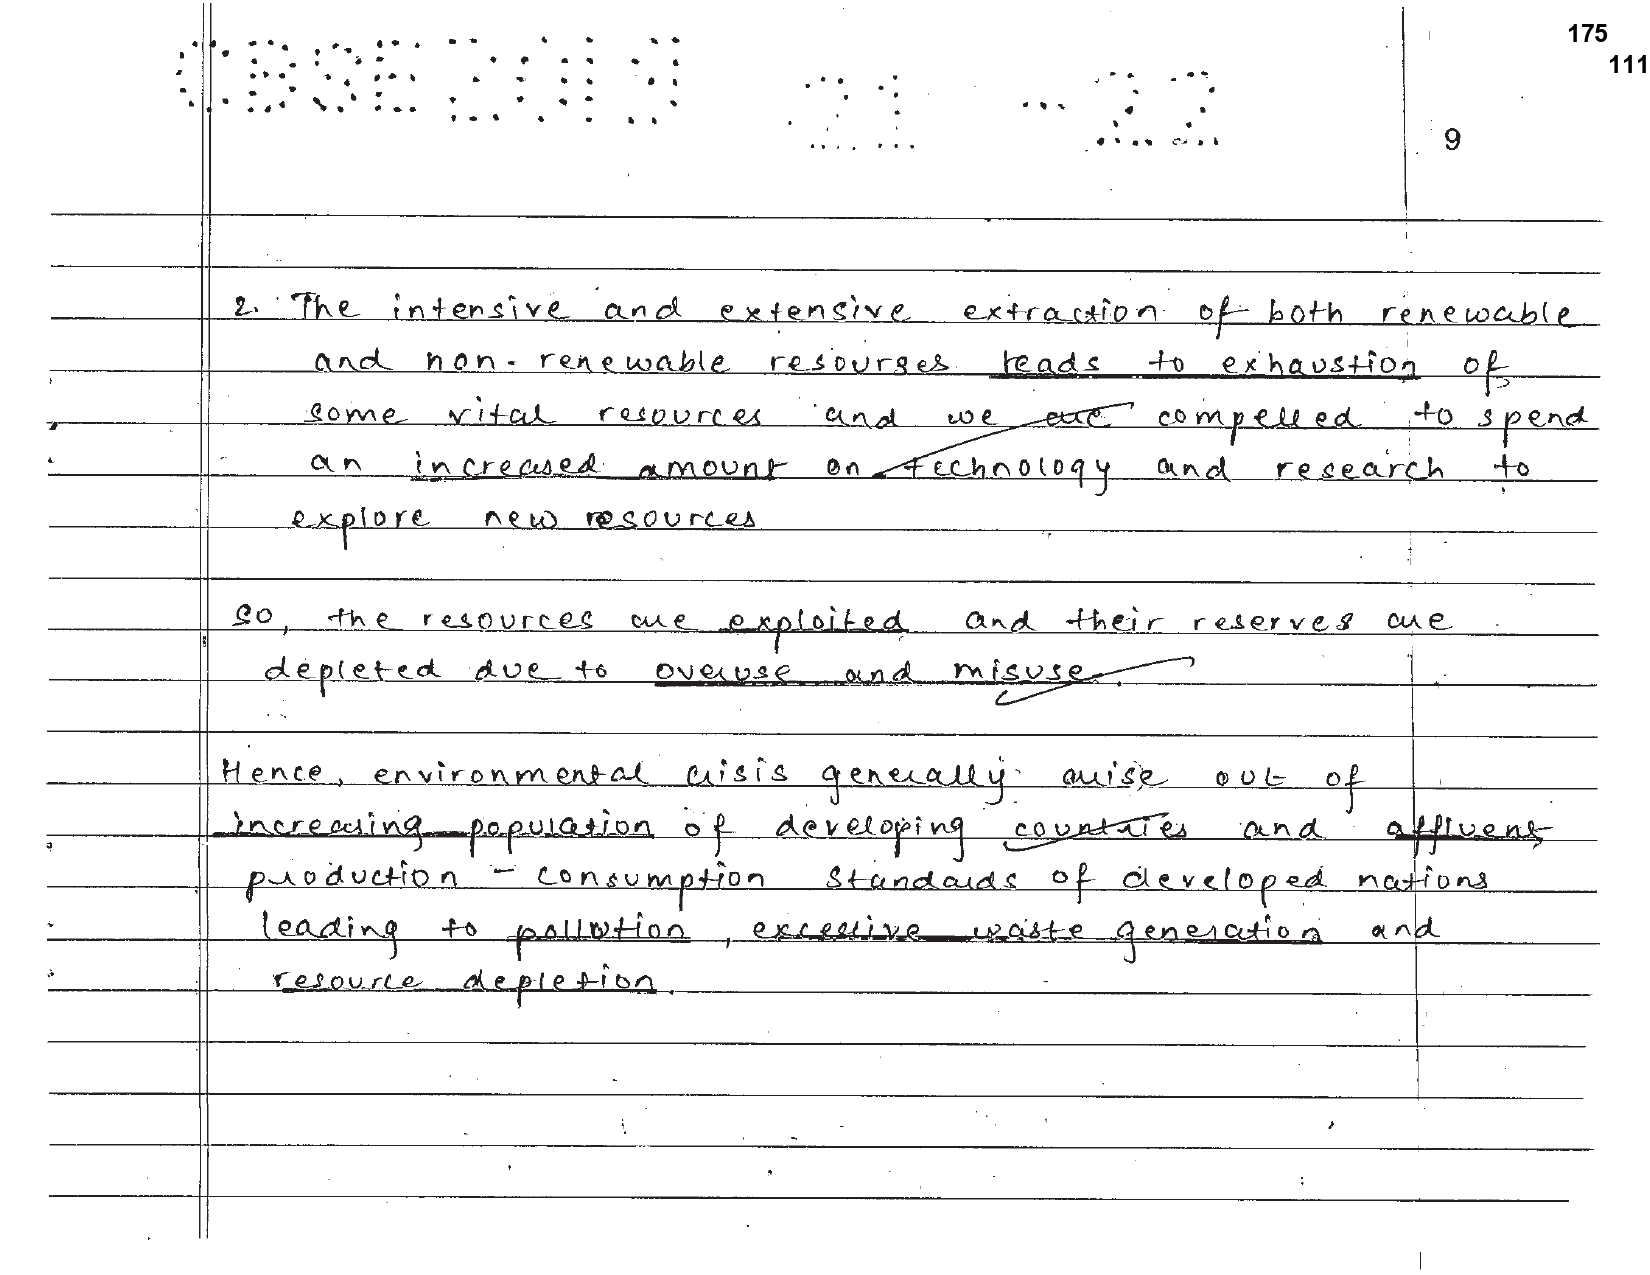 175
111
CBSE 2019 21 - 22
9
2. The intensive and extensive extraction of both renewable
and non-renewable resourges leads to exhaustion of
some vital resources and we are compelled to spend
an increased amount on technology and research to
explore new resources
So, the resources are exploited and their reserves are
depleted due to overuse and misuse.
Hence, environmental crisis generally arise out of
increasing population of developing countries and affluent
production - consumption standards of developed nations
leading to pollution, excessive waste generation and
resource depletion.